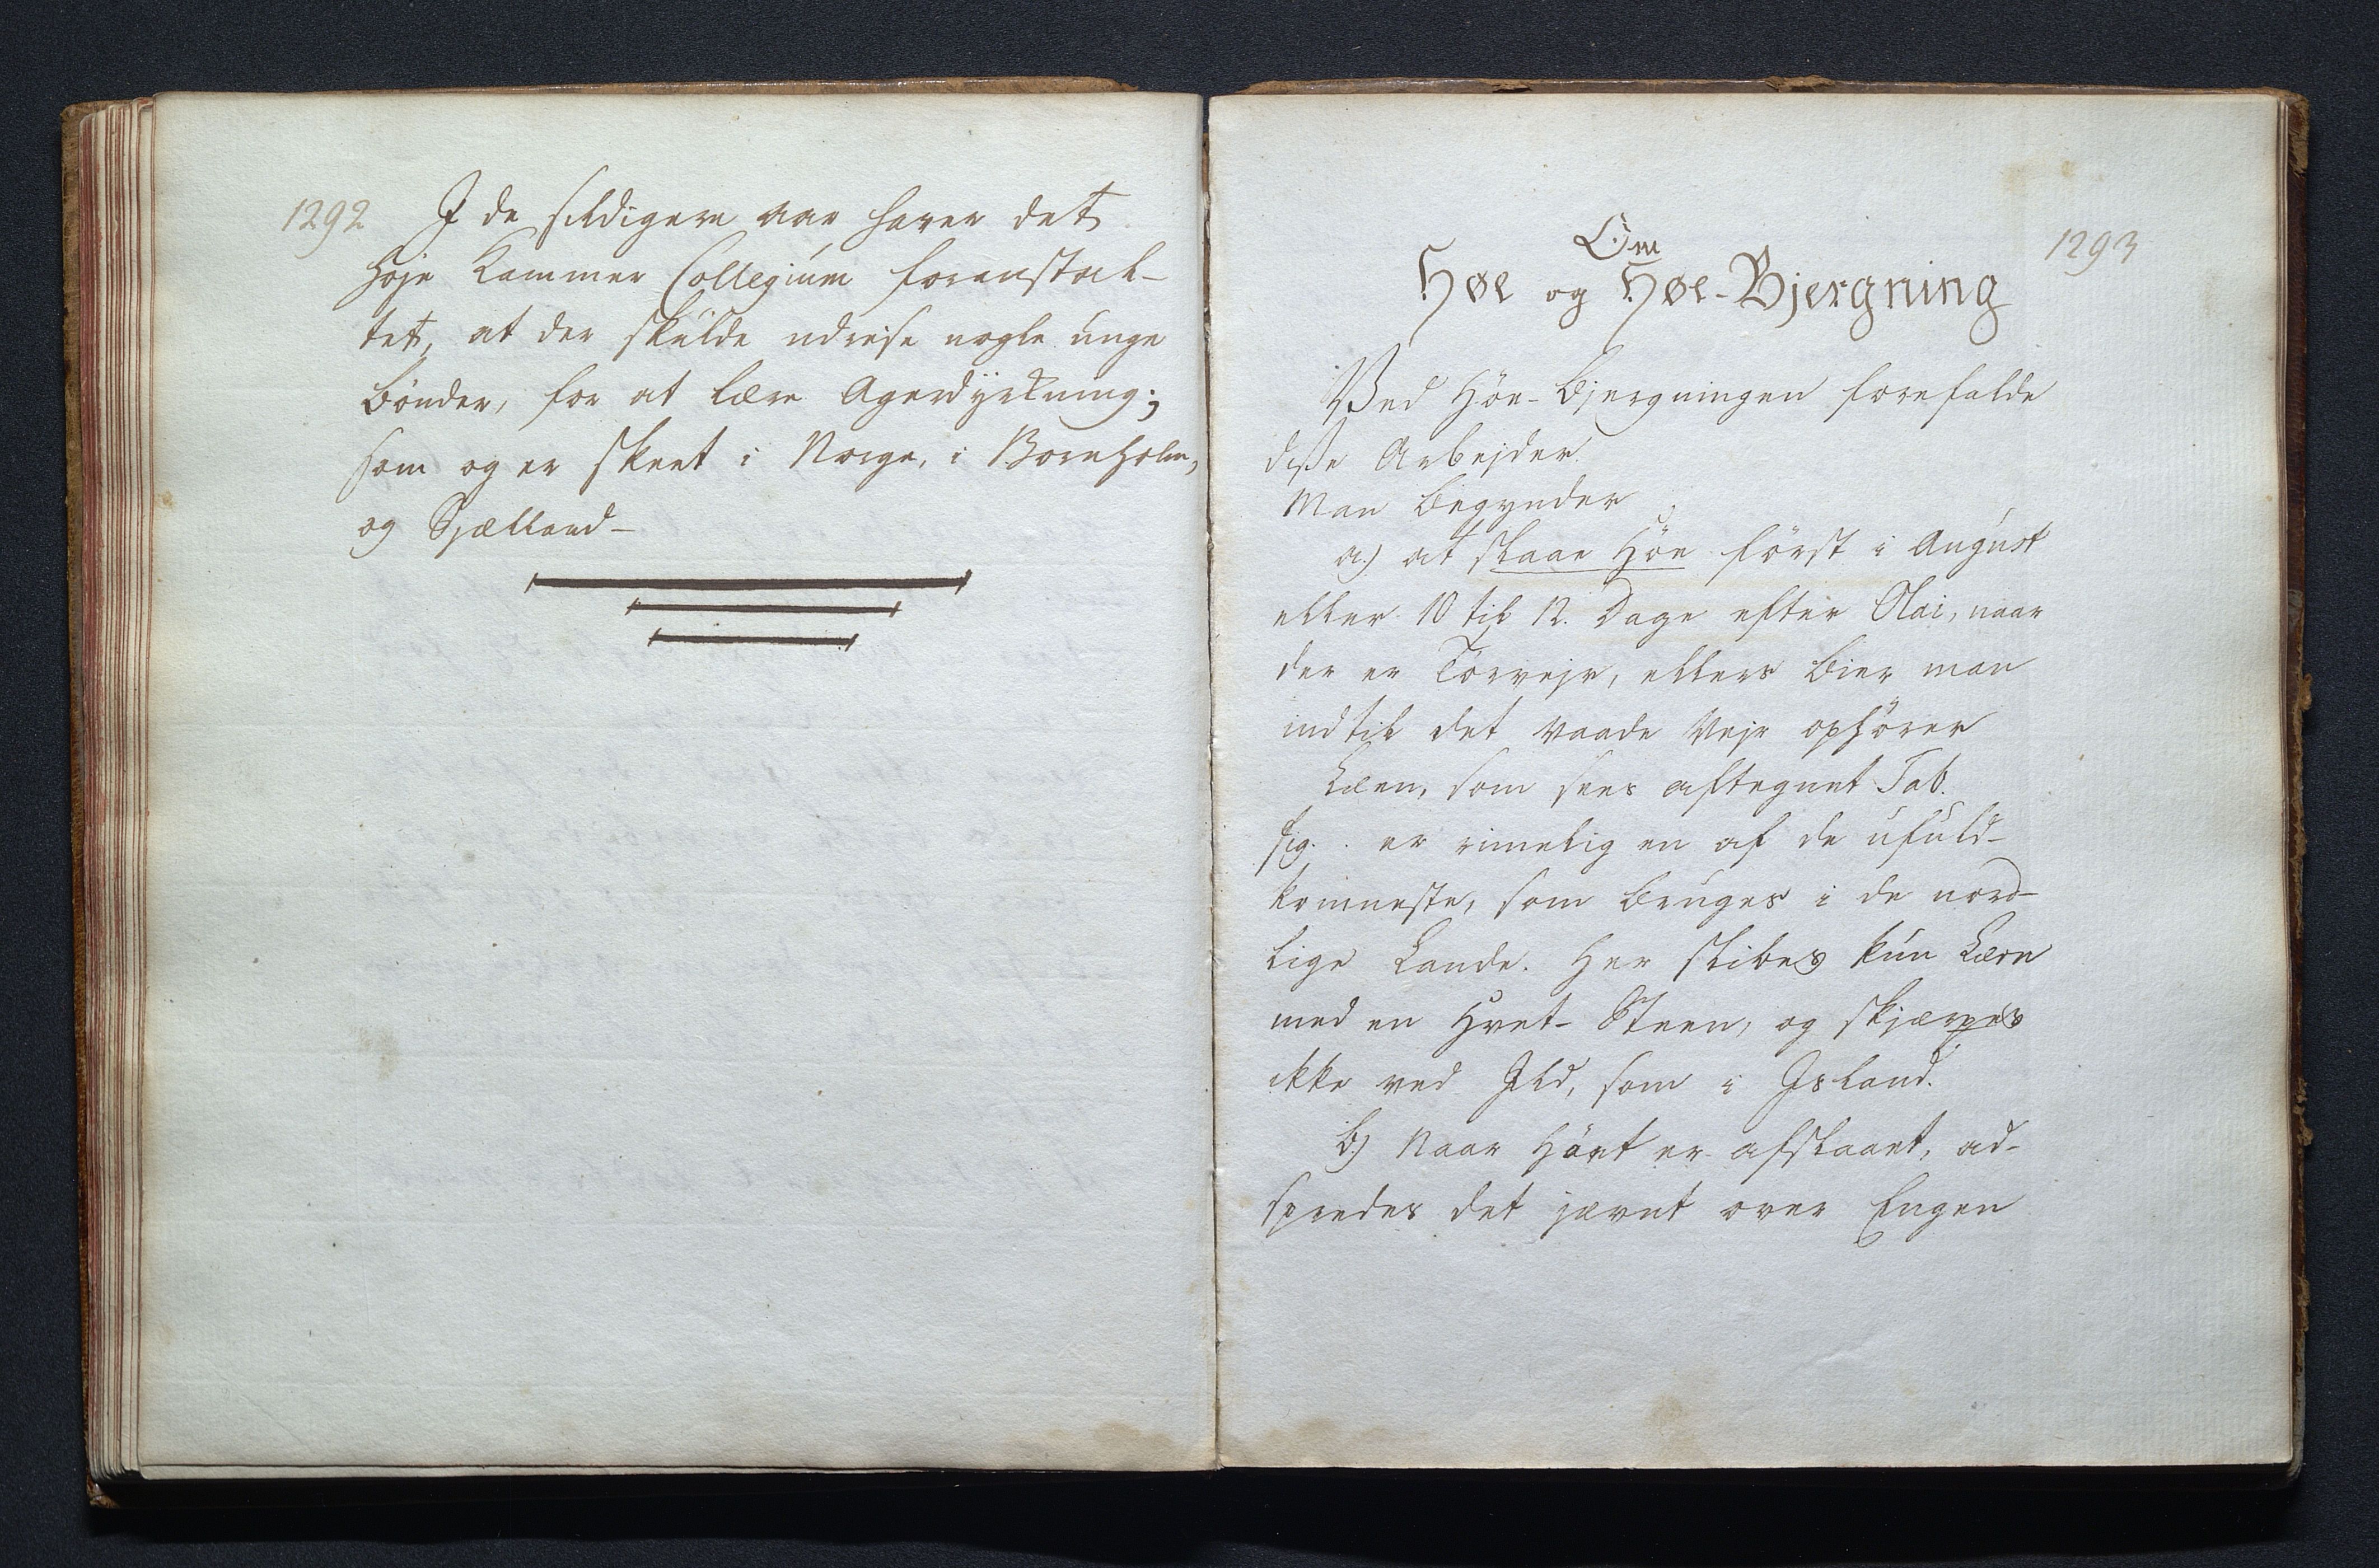 1292
I de sildigere aar haver det
Höje Kammer Collegium foranstal-
tet, at der skulde udreise nogle unge
Bönder, for at lære Agerdyrkning;
som og er skeet i Norge, i Bornholm,
og Sjælland-
1293
Om
Høe og Høe-Bjergning
Ved Höe-Bjergningen forefalde
disse Arbejder.
Man begynder
a.) at slaae Höe först i August
eller 10 til 12. Dage efter Olai, naar
der er Törvejr, ellers bier man
indtil det vaade Vejr ophörer
Læen, som sees aftegnet Tab.
fig. . er rimelig en af de ufuld-
komneste, som bruges i de nord-
lige Lande. Her slibes kun Læen
med en Hvet-Steen, og skjærpes
ikke ved Ild, som i Island.
b.) Naar Höet er afslaaet, ad-
spredes det jævnt over Engen